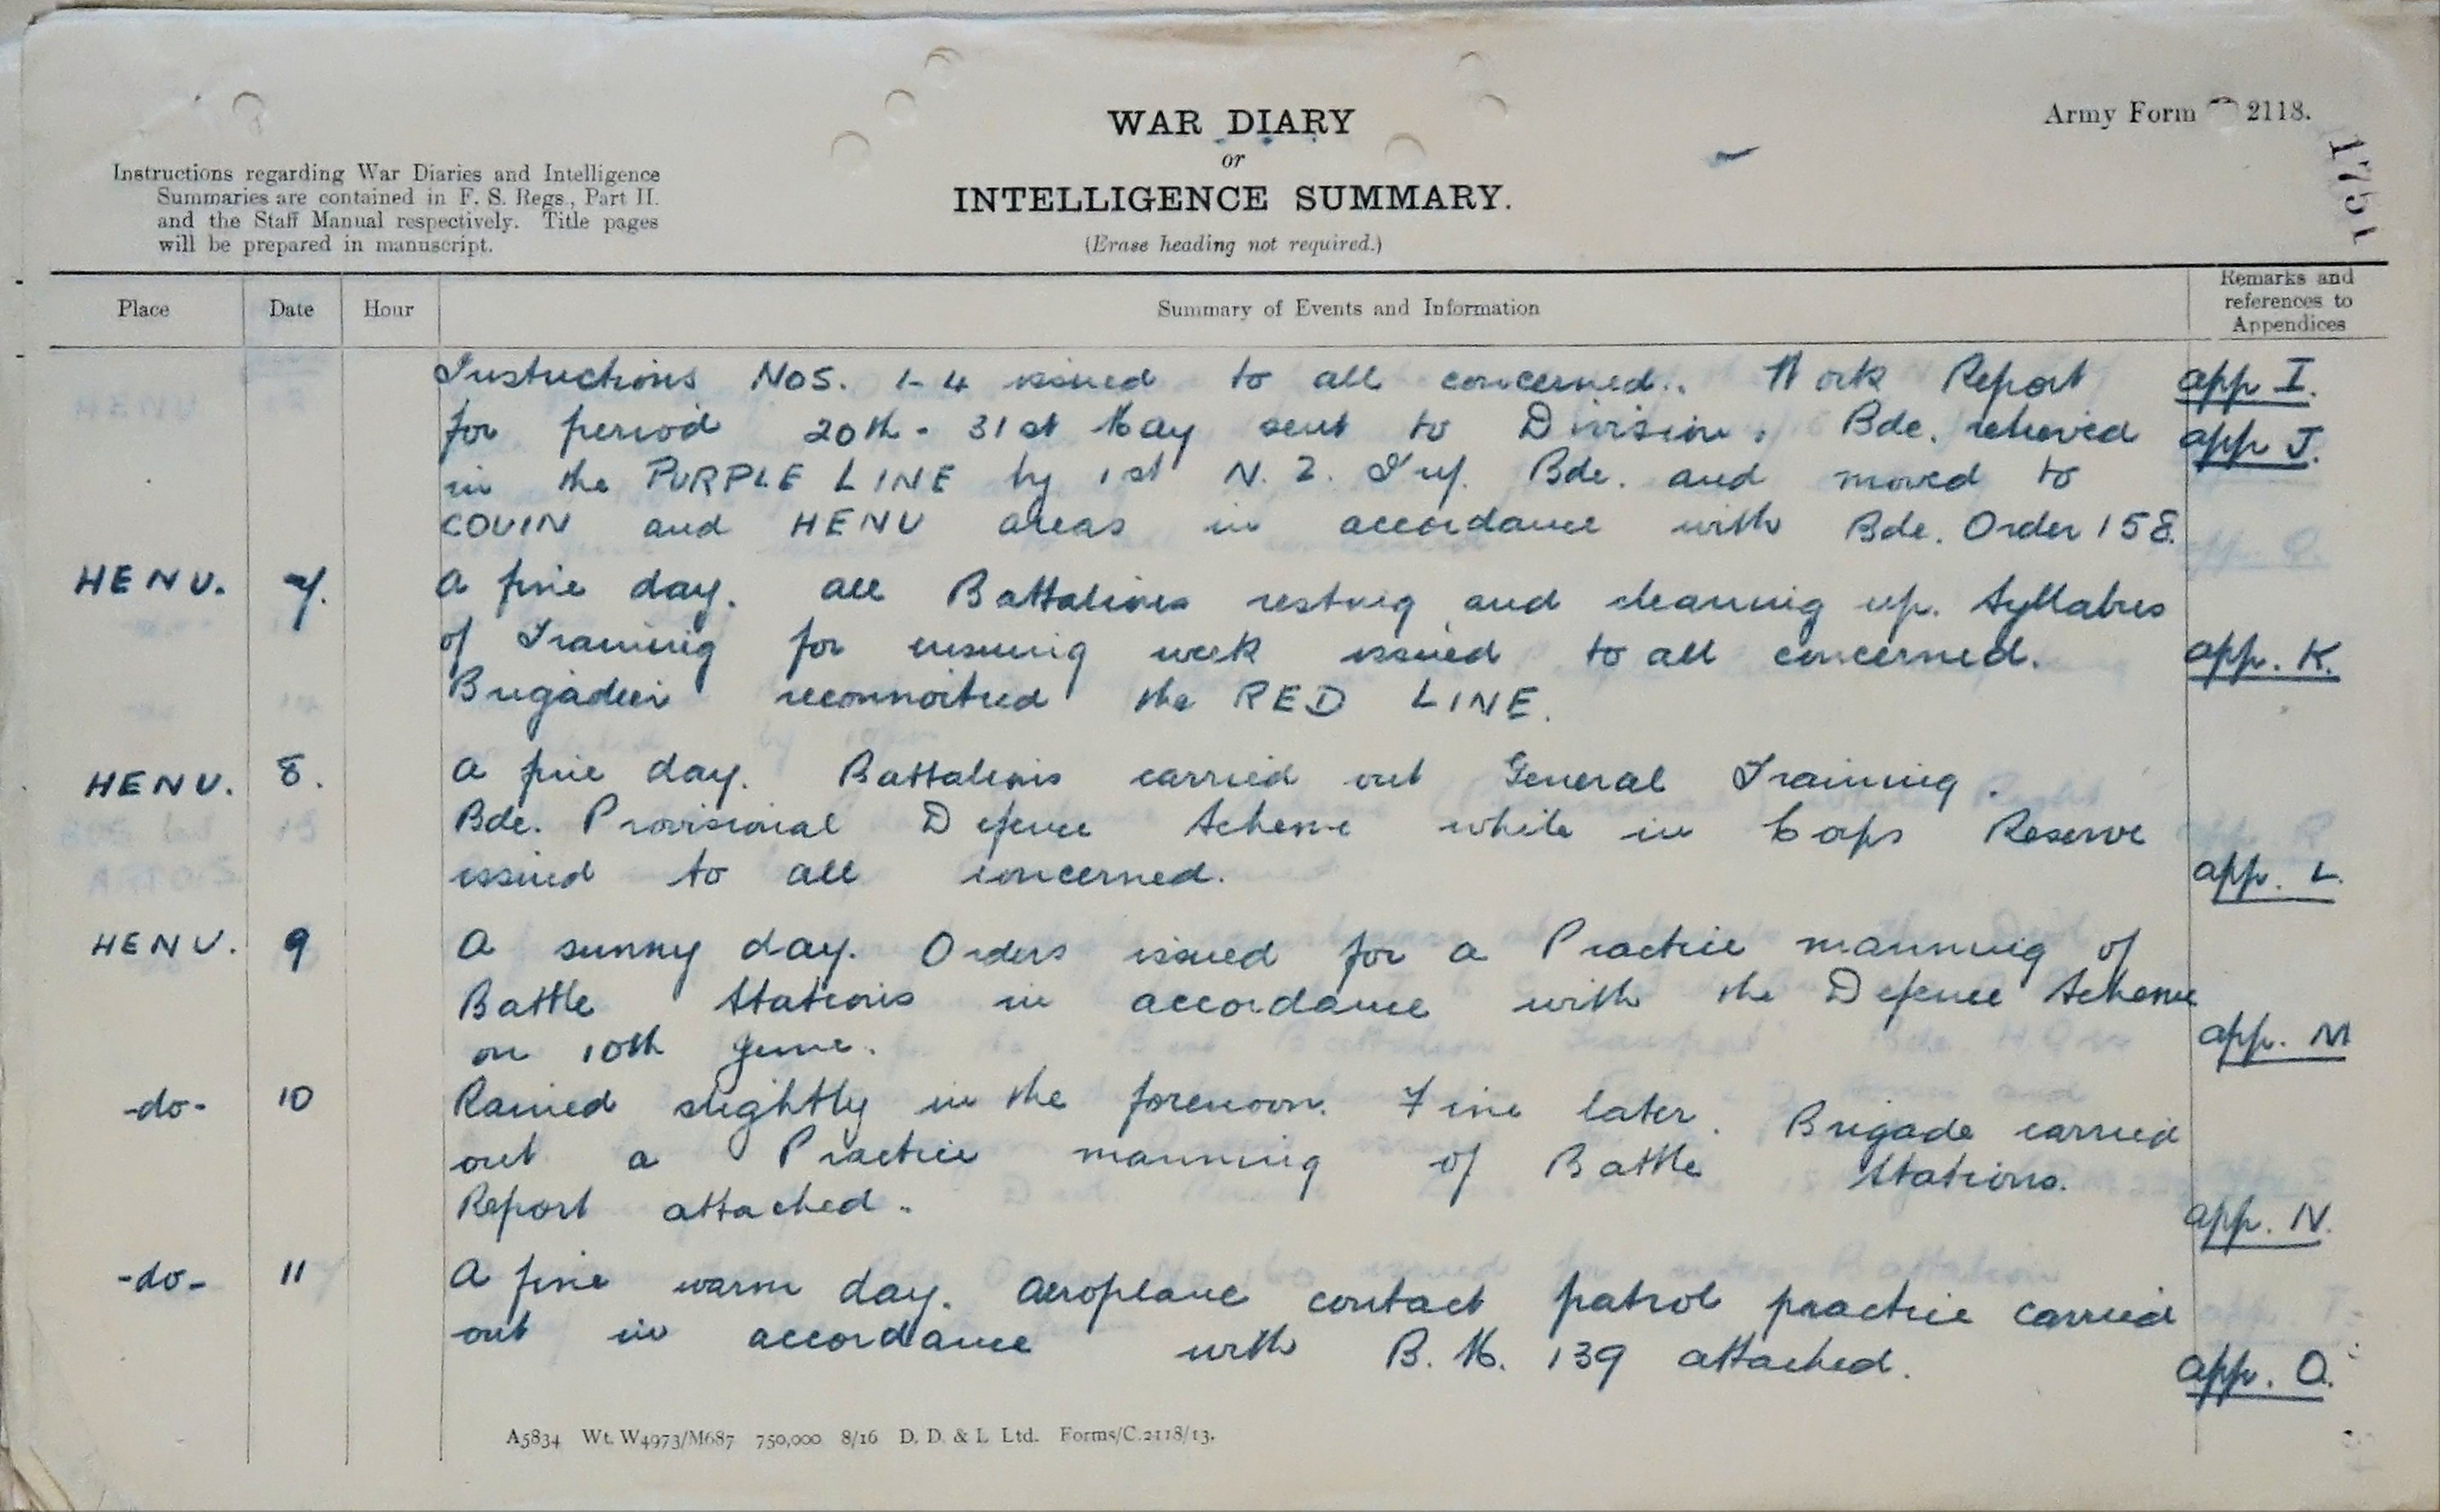 WAR DIARY
or
INTELLIGENCE SUMMARY.
(Erase heading not required.)
Army Form 2118.
1751
Instructions regarding War Diaries and Intelligence
Summaries are contained in F. S. Regs., Part II.
and the Staff Manual respectively. Title pages
will be prepared in manuscript.
Place Date Hour Summary of Events and Information Remarks and
references to
Appendices
Instuctions Nos. 1-4 issued to all concerned. Work Report app I.
for period 20th - 31st May sent to Division. Bde. relieved app J.
in the PURPLE LINE by 1st N.Z. Inf. Bde. and moved to
COUIN and HENU areas in accordance with Bde. Order 158.
HENU. 7. A fine day. All Battalions resting and cleaning up. Syllabus
of Training for ensuing week issued to all concerned. app. K.
Brigadier reconnoitred the RED LINE.
HENU. 8. A fine day. Battalions carried out General Training.
Bde. Provisional Defence Scheme while in Corps Reserve
issued to all concerned. app. L.
HENU. 9 A sunny day. Orders issued for a Practice manning of
Battle Stations in accordance with the Defence Scheme
on 10th June. app. M
-do- 10 Rained slightly in the forenoon. Fine later. Brigade carried
out a Practice manning of Battle Stations.
Report attached. app. N.
-do- 11 A fine warm day. Aeroplane contact patrol practice carried
out in accordance with B.M. 139 attached. app. O.
A5834 Wt. W4973/M687 750,000 8/16 D. D. & L. Ltd. Forms/C.2118/13.